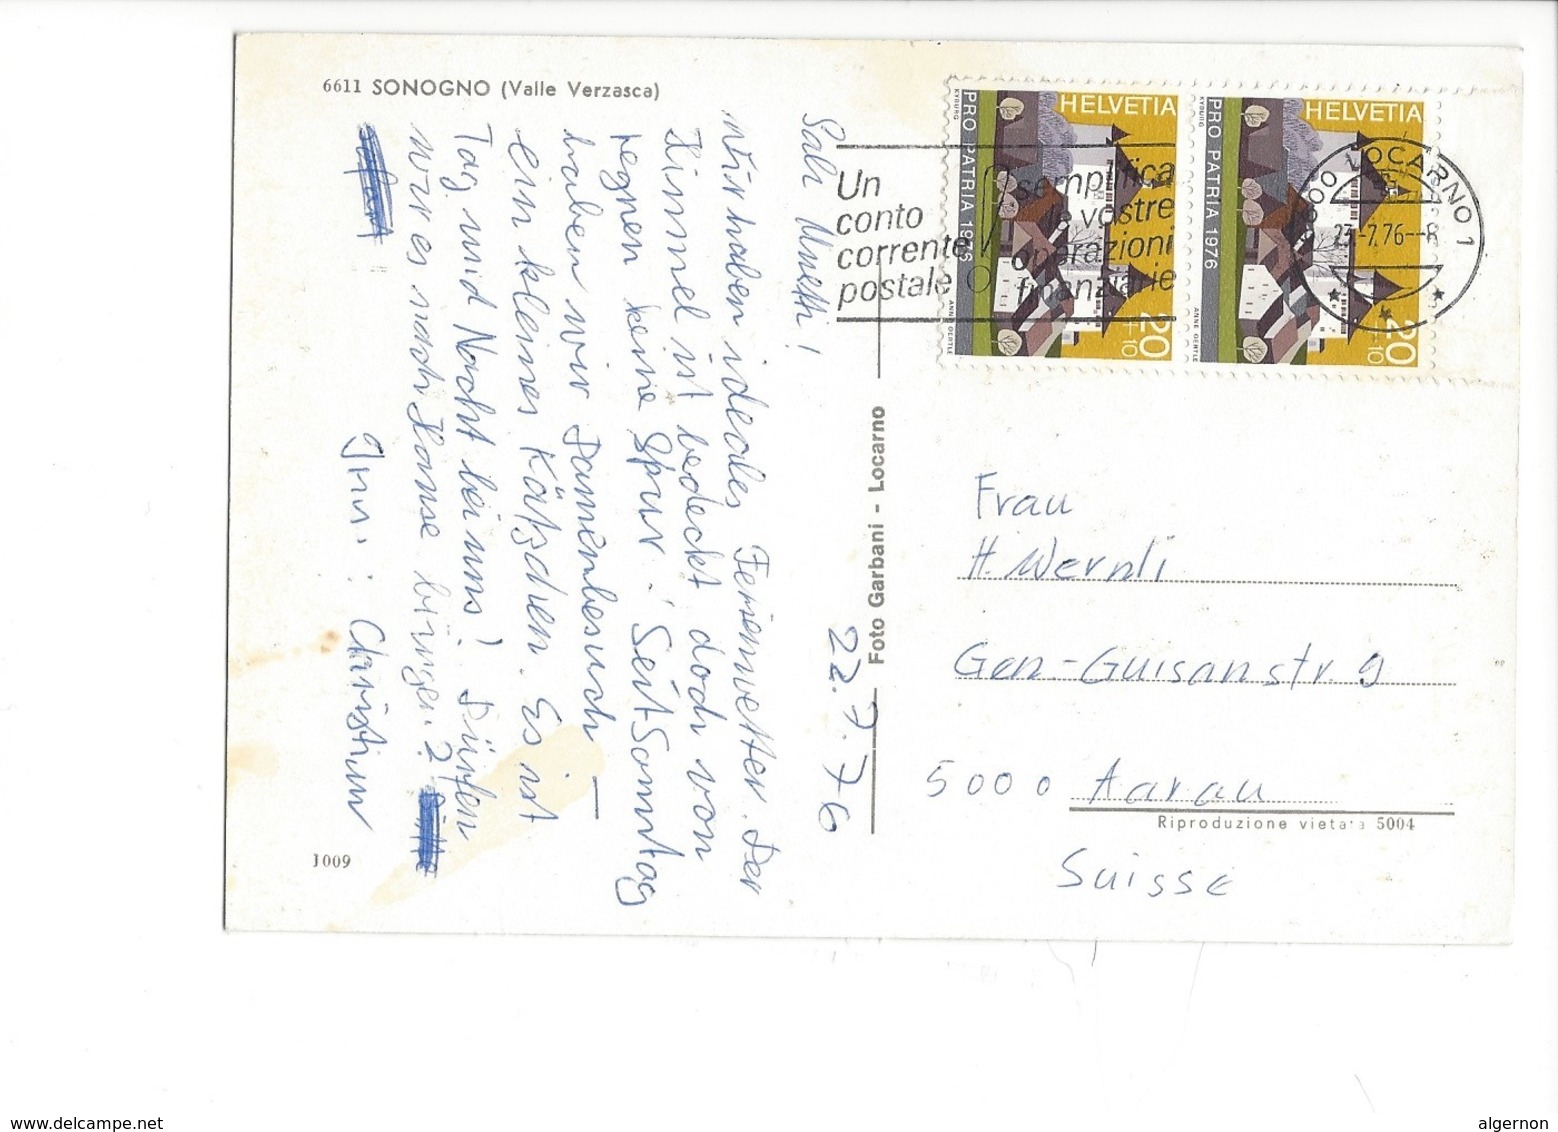 6611 SONOGNO (Valle Verzasca)
Sali !
Wir haben ideales Ferienwetter. Der
Himmel ist bedeckt doch von
regnen keine Spur! Seit Sonntag
haben wir Damenbesuch –
ein kleines Kätzchen. Es ist
Tag und Nacht bei uns! Dürfen
wir es nach Hause bringen?
Gruss: Christian
22.7.76
1009
Foto Garbani - Locarno
Un
conto
corrente
postale
semplifica
le vostre
operazioni
finanziarie
HELVETIA
PRO PATRIA 1976
KYBURG
ANNE OERTLE
20
+10
HELVETIA
PRO PATRIA 1976
KYBURG
ANNE OERTLE
20
+10
6600 LOCARNO 1
23.-7.76--8
Frau
H. Wernli
Gen-Guisanstr. 9
5000 Aarau
Riproduzione vietata 5004
Suisse
www.delcampe.net
algernon